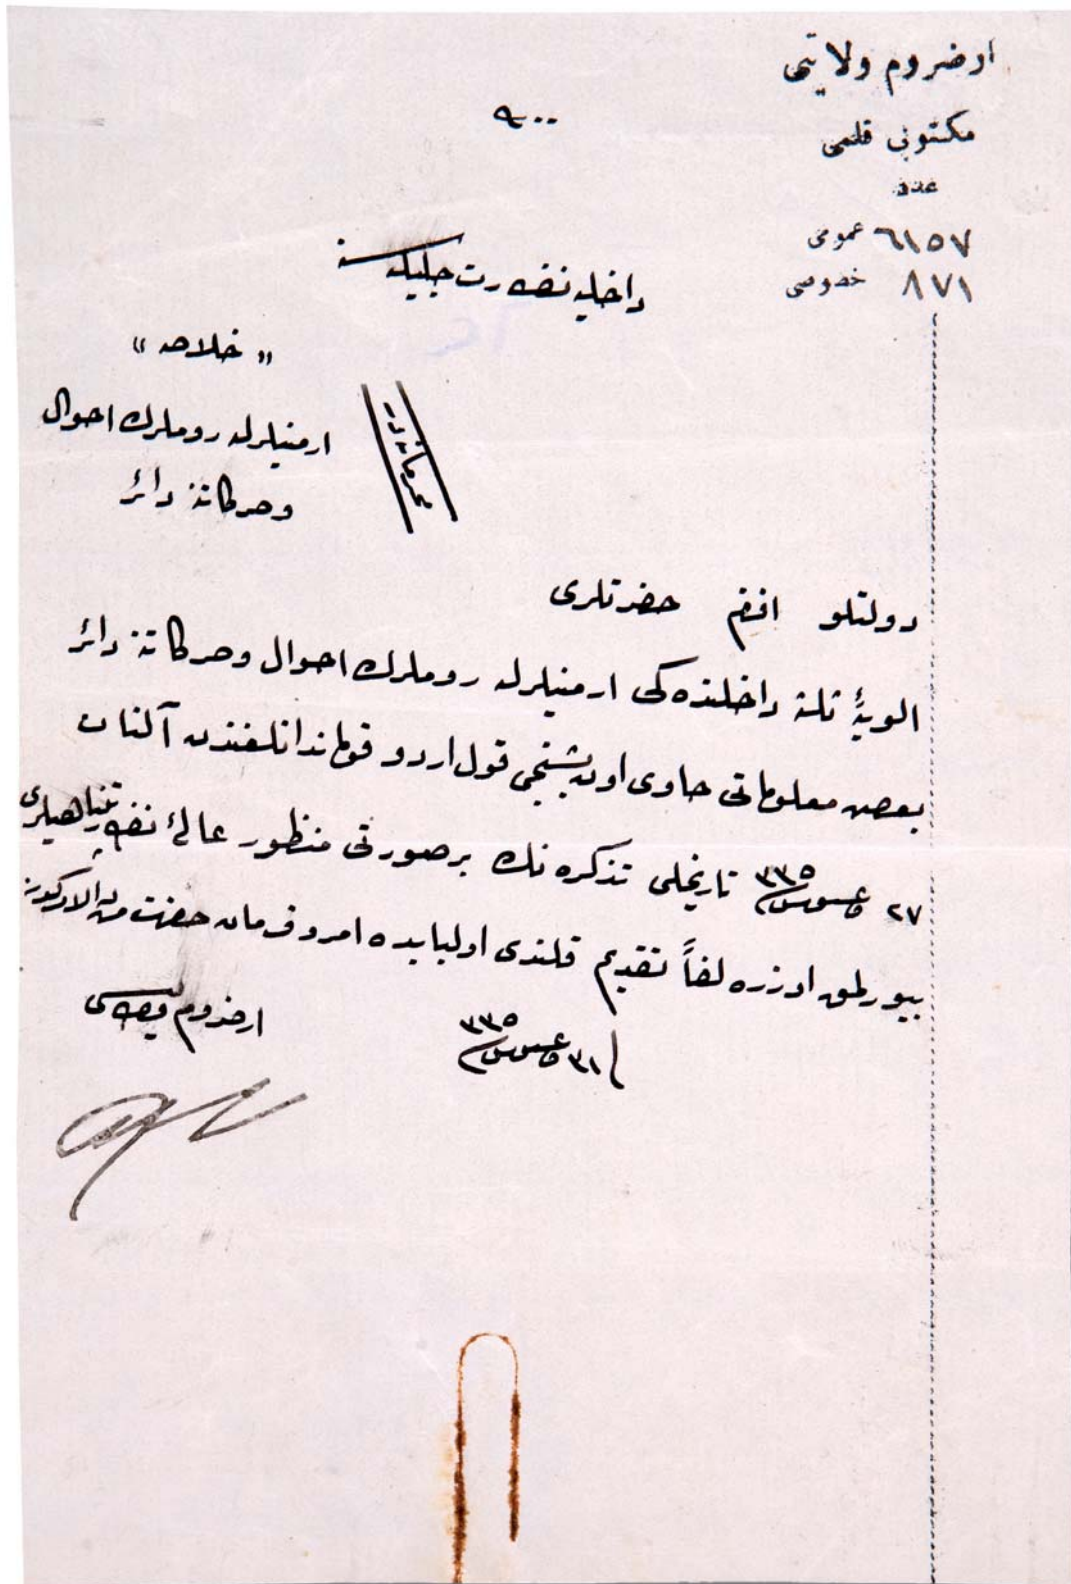 ارضروم ولايتى
مكتوبى قلمى
عدد
عمومى ٦١٥٧
خصوصى ٨٧١
داخليه نظارت جليله‌سنه
« خلاصه »
ارمنيلرله روملرك احوال
وحركاتنه دائر
محرمانه در
دولتلو افندم حضرتلرى
الويهٔ ثلثه داخلنده كى ارمنيلرله روملرك احوال وحركاتنه دائر
بعض معلوماتى حاوى اون بشنجى قول اردو قوماندانلغندن آلنان
٢٧ اغستوس ٣٣٥ تاريخلى تذكره نك بر صورتى منظور عالئ نظارتپناهيلرى
بيورلمق اوزره لفاً تقديم قلندى اولبابده امر وفرمان حضرت من له الامركدر
٣١ اغستوس ٣٣٥
ارضروم واليسى